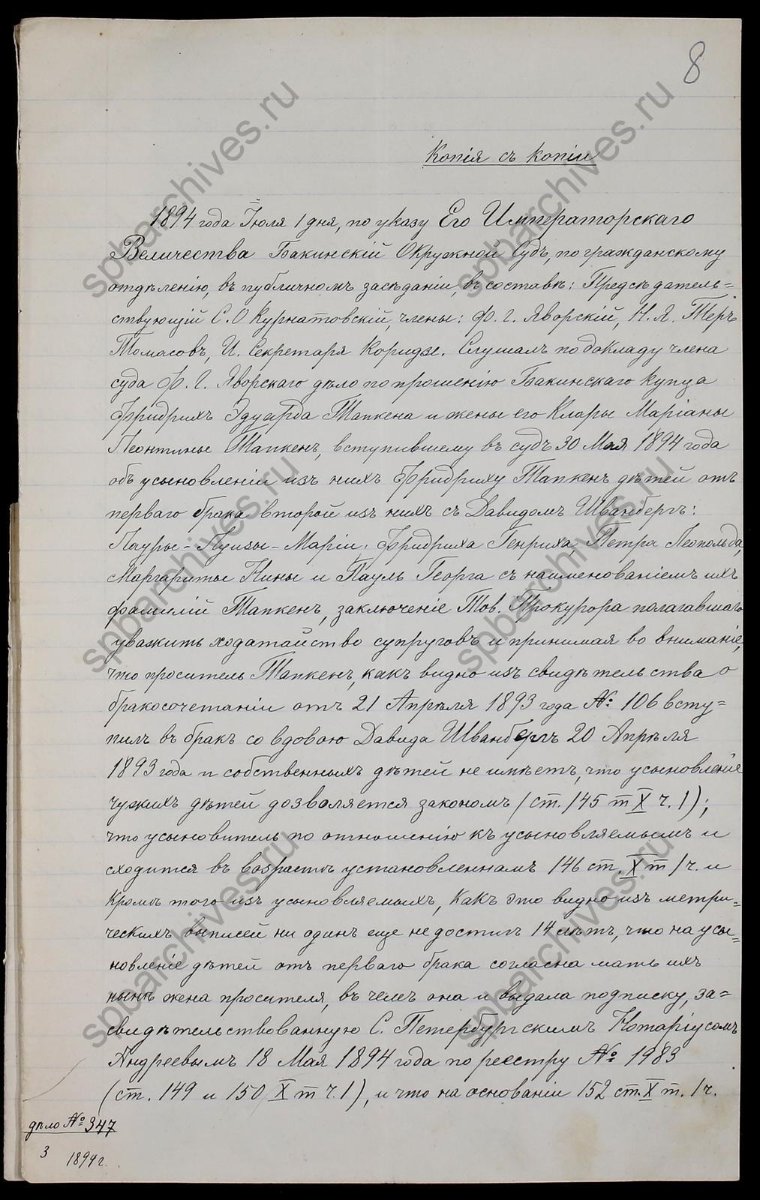 8
Копія съ копіи
1894 года Іюля 1 дня, по указу Его Императорскаго
Величества Бакинскій Окружной Судъ, по гражданскому
отдѣленію, въ публичномъ засѣданіи, въ составѣ: Предсѣдатель=
ствующій С. О Курнатовскій, члены: Ф. Г. Яворскій, Н. Я. Теръ
Томасовъ, И. Секретаря Коридзе. Слушалъ по докладу члена
суда Ф. Г. Яворскаго дѣло по прошенію Бакинскаго купца
Фридрихъ Эдуарда Тапкена и жены его Клары Маріаны
Леонтины Тапкенъ, вступившему въ судъ 30 Мая 1894 года
объ усыновленіи изъ нихъ Фридриху Тапкенъ дѣтей отъ
перваго брака второй изъ нихъ съ Давидомъ Шванбергъ:
Лауры-Луизы-Маріи, Фридриха Генриха, Петра Леопольда,
Маргариты Нины и Пауль Георга съ наименованіемъ ихъ
фамиліи Тапкенъ, заключеніе Тов. Прокурора полагавшаго
уважить ходатайство супруговъ и принимая во вниманіе,
что проситель Тапкенъ, какъ видно изъ свидѣтельства о
бракосочетаніи отъ 21 Апрѣля 1893 года № 106 всту=
пилъ въ бракъ со вдовою Давида Шванбергъ 20 Апрѣля
1893 года и собственныхъ дѣтей не имѣетъ, что усыновленіе
чужихъ дѣтей дозволяется закономъ (ст. 145 т X ч. 1);
что усыновитель по отношенію къ усыновляемымъ и
сходится въ возрастѣ установленномъ 146 ст. X т. 1 ч. и
кромѣ того изъ усыновляемыхъ, какъ это видно изъ метри=
ческихъ выписей ни одинъ еще не достигъ 14 лѣтъ, что на усы=
новленіе дѣтей отъ перваго брака согласна мать ихъ
нынѣ жена просителя, въ чемъ она и выдала подписку, за=
свидѣтельствованную С. Петербургскимъ Нотаріусомъ
Андреевымъ 18 Мая 1894 года по реестру № 1983
(ст. 149 и 150 X т ч. 1), и что на основаніи 152 ст. X т. 1 ч.
дѣло № 347
3 1894 г.
spbarchives.ru
spbarchives.ru
spbarchives.ru
spbarchives.ru
spbarchives.ru
spbarchives.ru